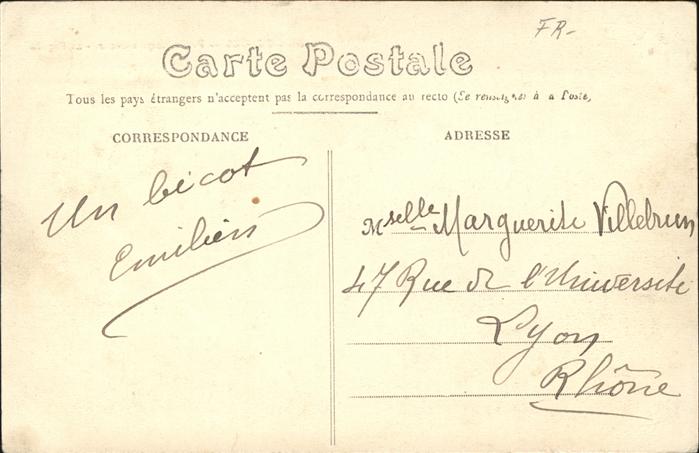 FR-
Carte Postale
Tous les pays étrangers n'acceptent pas la correspondance au recto (Se renseigner à la Poste)
CORRESPONDANCE
ADRESSE
Un bécot
Emilien
Mselle Marguerite Villebrun
47 Rue de l'Université
Lyon
Rhône